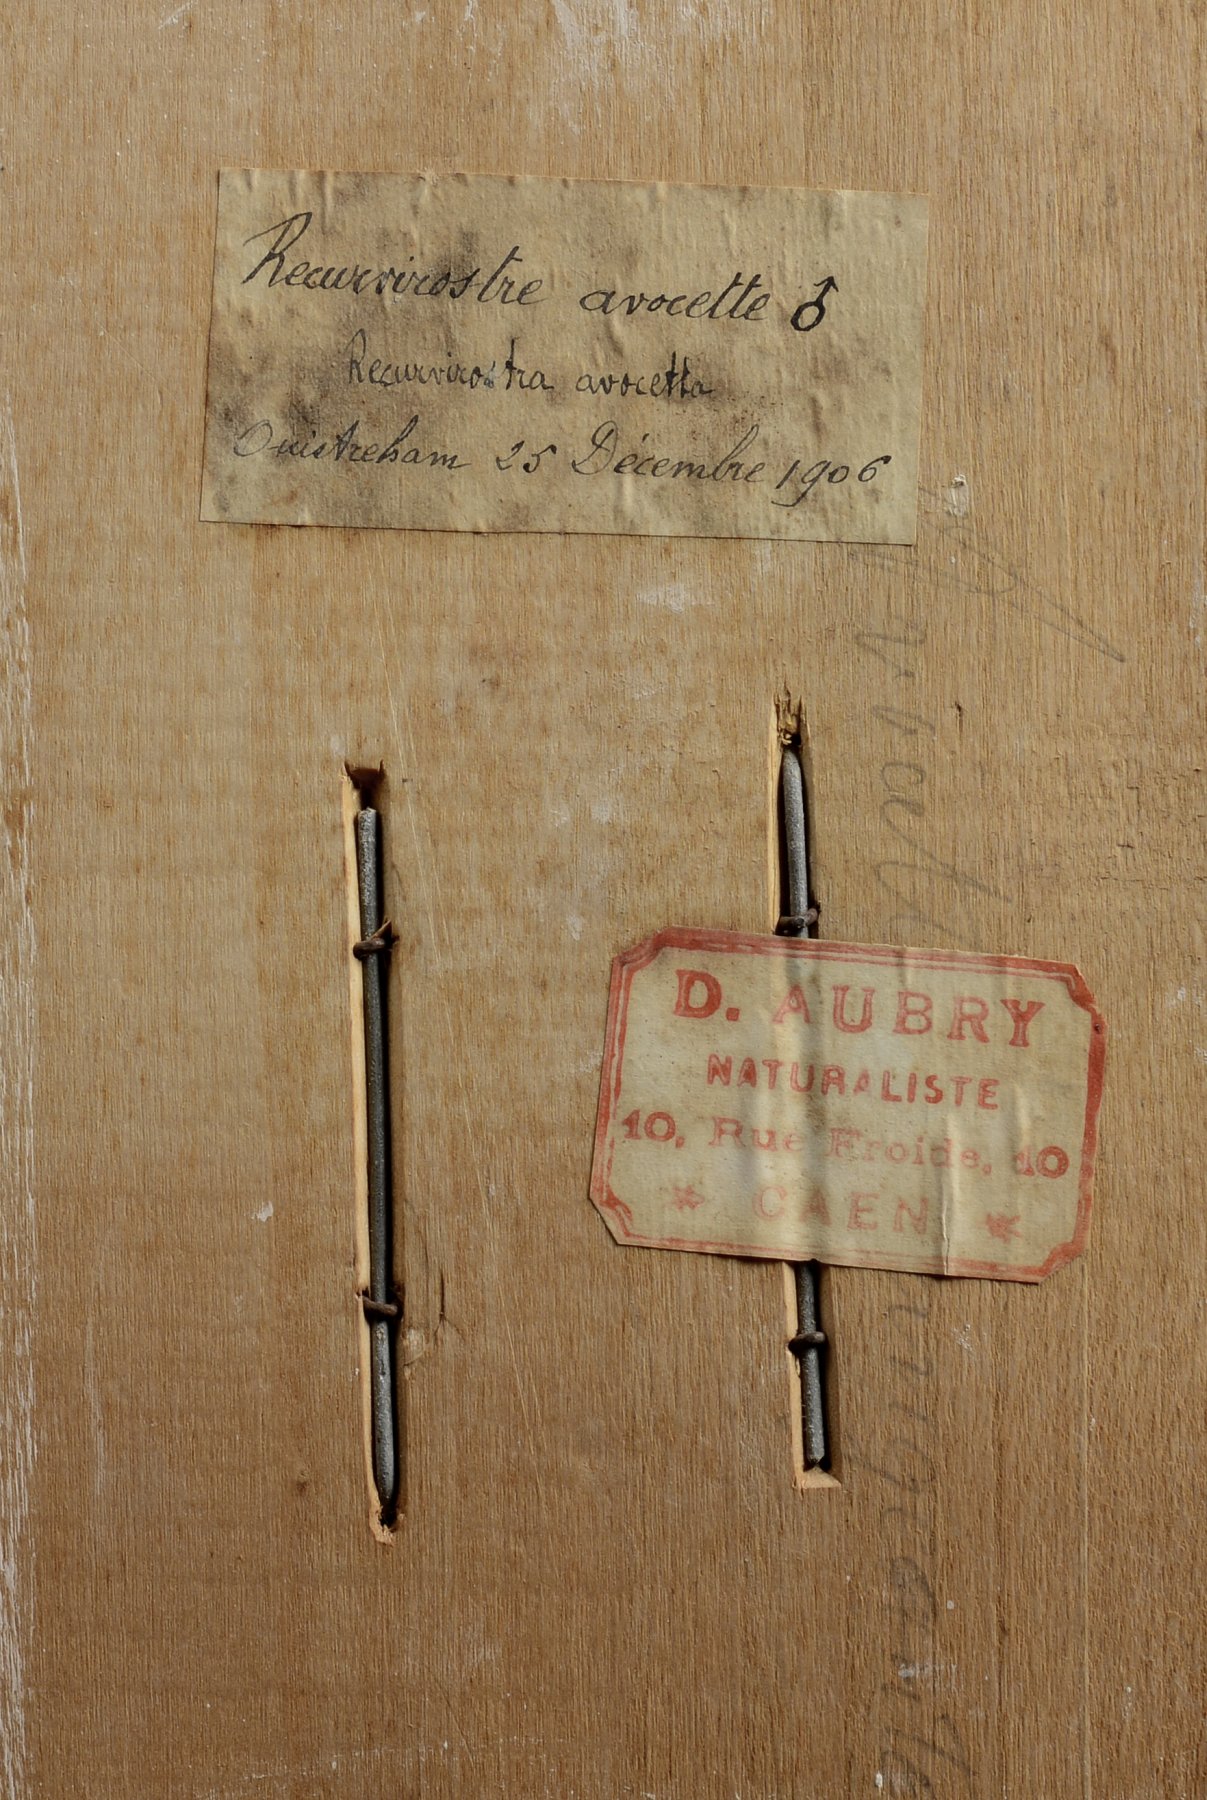 Recurvirostre avocette ♂
Recurvirostra avocetta
Ouistreham 25 Décembre 1906
D. AUBRY
NATURALISTE
10, Rue Froide, 10
* CAEN *